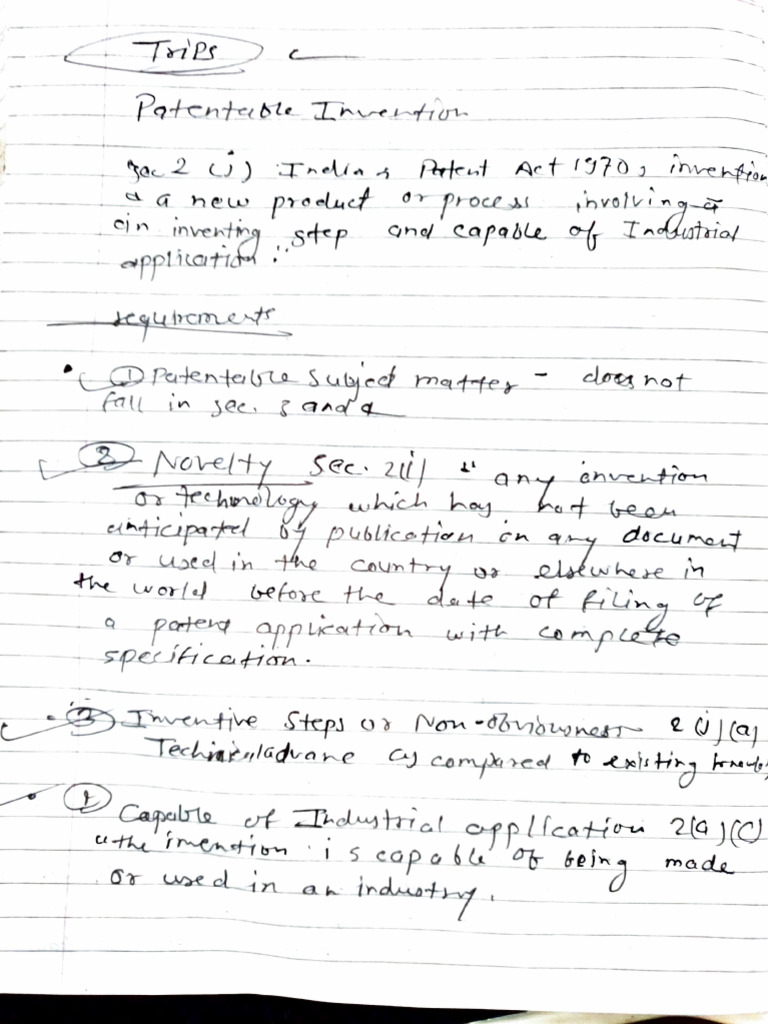 TriPs
Patentable Invention
Sec 2 (j) Indian Patent Act 1970, invention
a new product or process involving a
in inventing step and capable of Industrial
application :
requirements
① Patentable Subject matter - does not
fall in sec. 3 and 4
② Novelty Sec. 2(l) " any invention
or technology which has not been
anticipated by publication in any document
or used in the country or elsewhere in
the world before the date of filing of
a patent application with complete
specification.
③ Inventive Steps or Non-obviousness 2(j)(a)
advance as compared to existing
Capable of Industrial application 2(a)(c)
"the invention is capable of being made
or used in an industry.